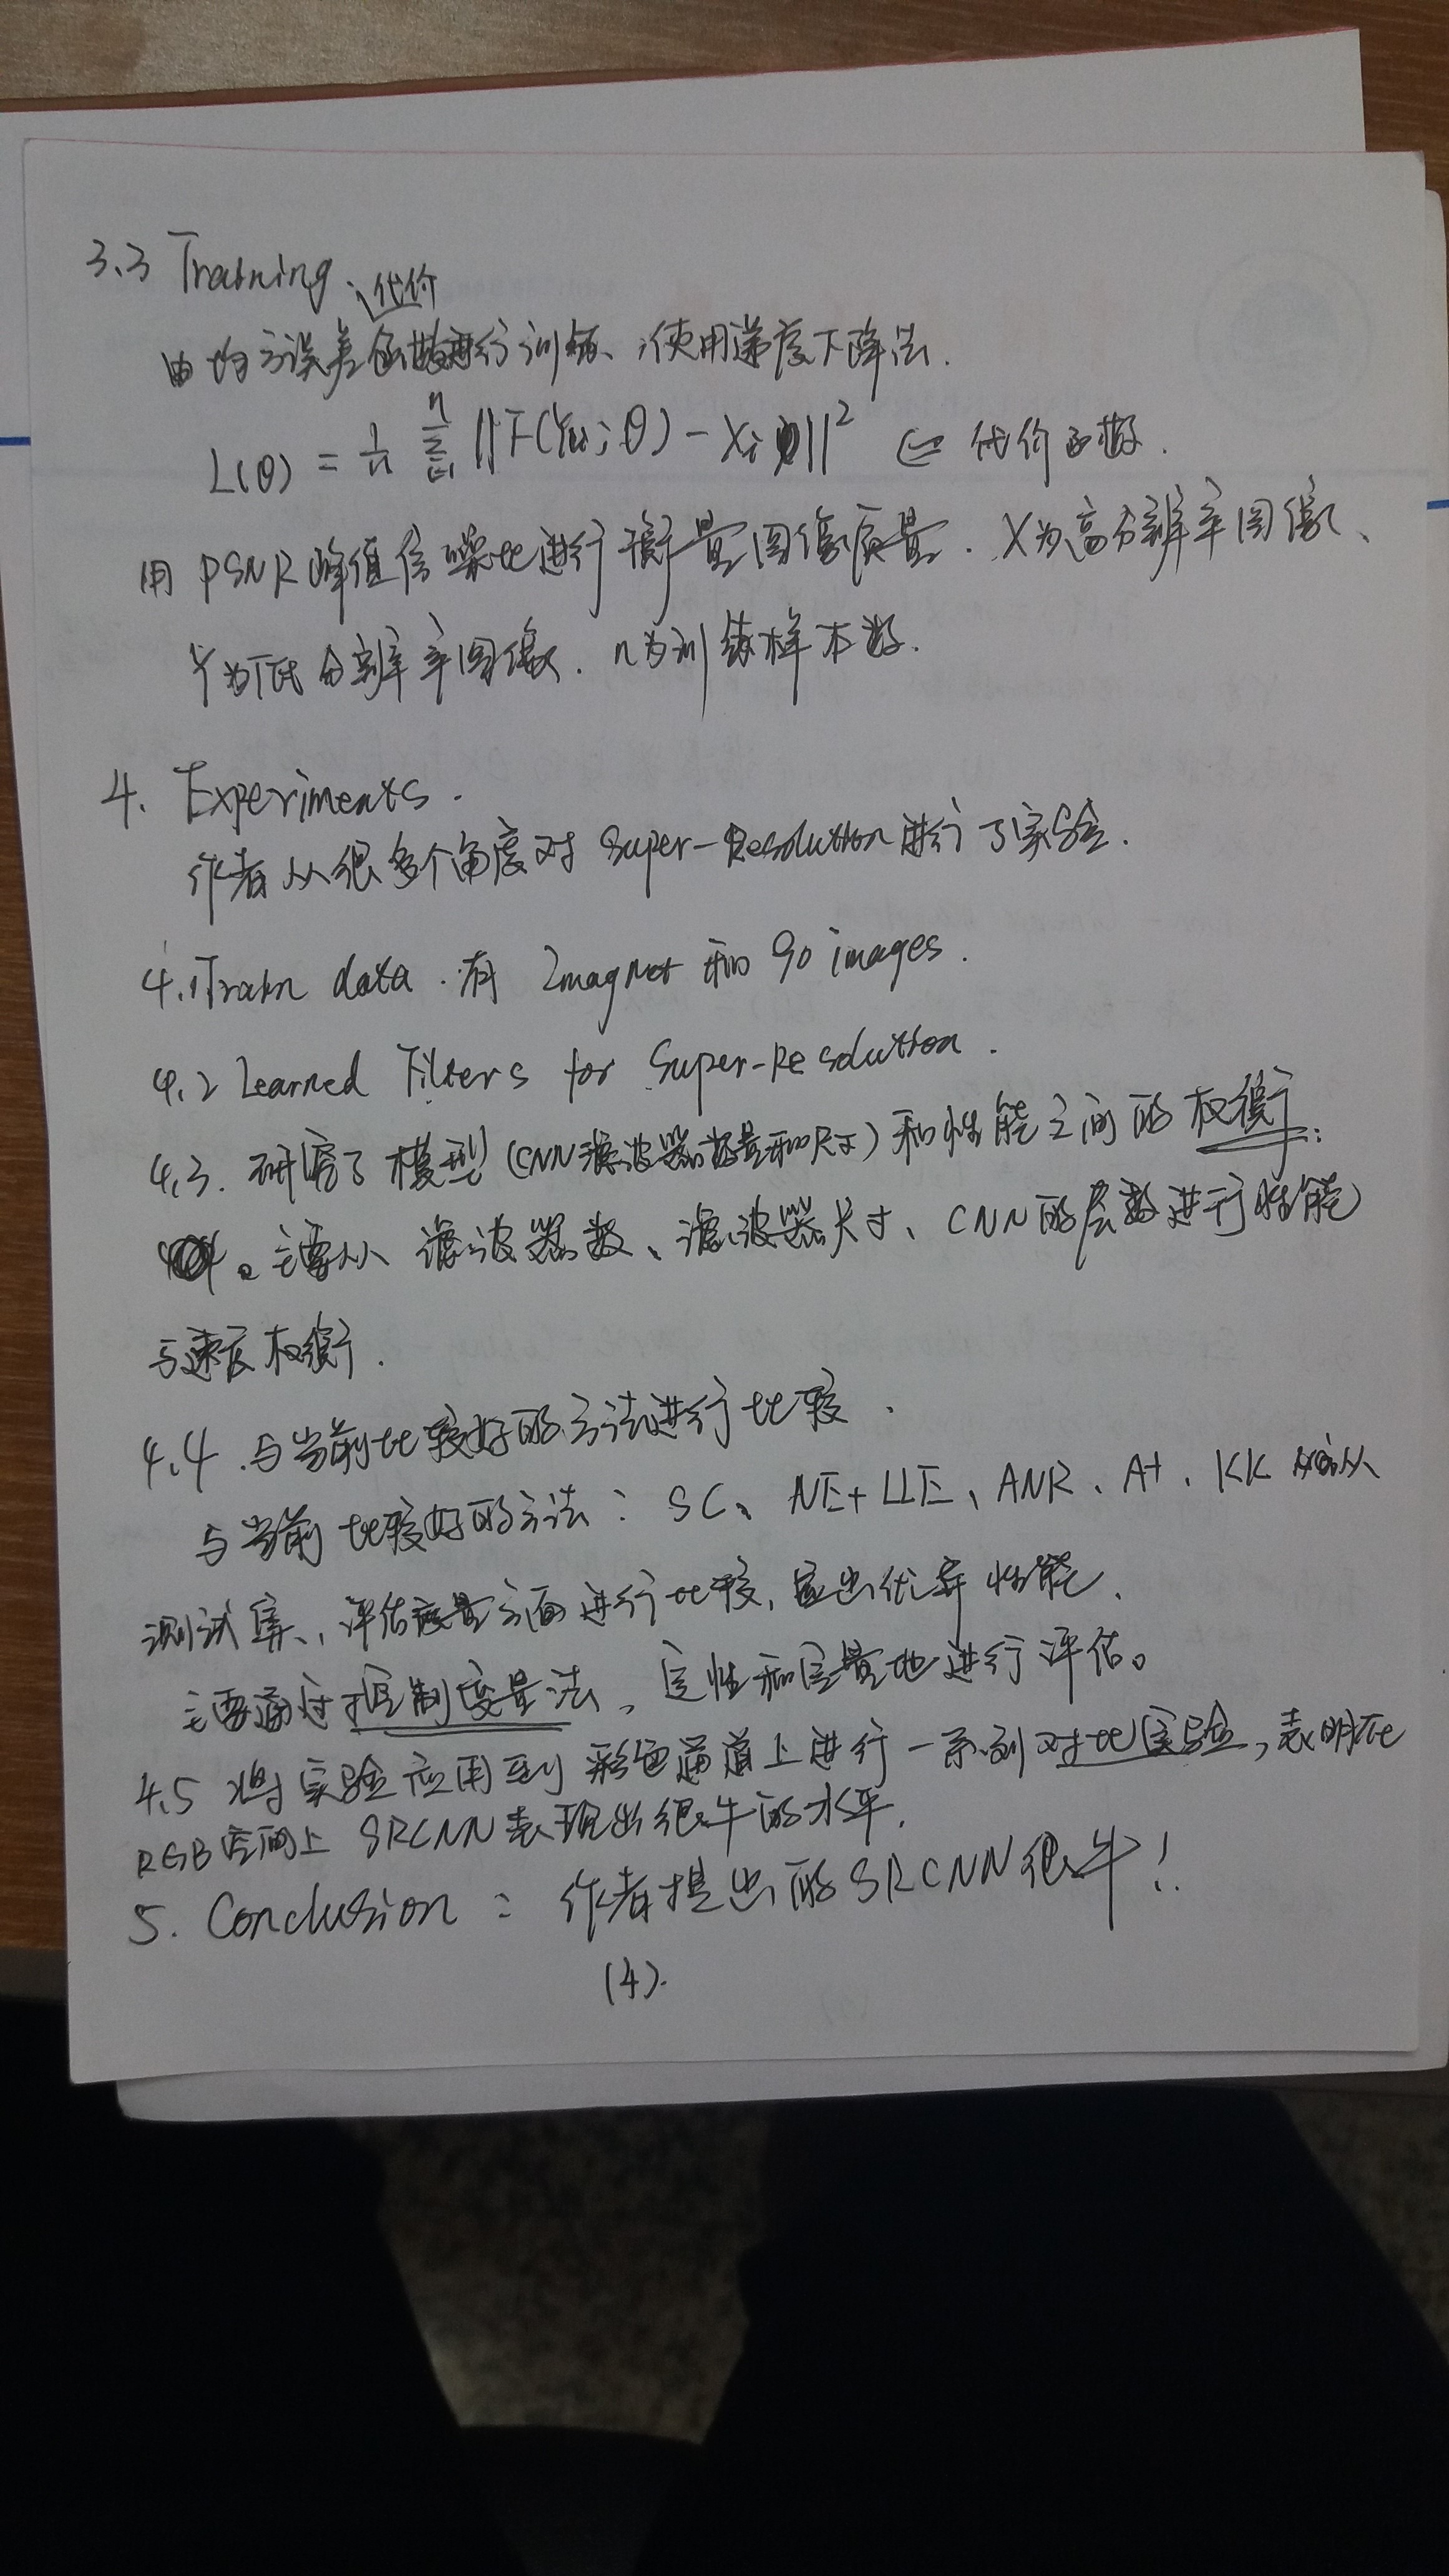 3.3 Training.
代价
由均方误差函数进行训练,使用递度下降法.
L(θ) = 1/n Σ i=1 n ||F(Yi;θ) - Xi||² ⇐ 代价函数.
用 PSNR 峰值信噪比进行衡量图像质量. X为高分辨率图像、
Y为低分辨率图像. n为训练样本数.
4. Experiments.
作者从很多个角度对 Super-Resolution进行了实验.
4.1 Train data. 有 ImagNet 和 90 images.
4.2 Learned Filters for Super-Resolution.
4.3. 研究了模型(CNN滤波器数量和尺寸)和性能之间的权衡.
主要从 滤波器数、滤波器尺寸、CNN的层数进行性能
与速度权衡.
4.4 .与当前比较好的方法进行比较.
与当前比较好的方法: SC、NE+LLE、ANR、A+、KK 从
测试集、评估度量方面进行比较, 性能.
主要通过控制度量法、定性和定量地进行评估。
4.5 将实验应用到彩色通道上进行一系列对比实验,表明在
RGB空间上 SRCNN表现出很牛的水平.
5. Conclusion: 作者提出的SRCNN很牛!
(4).